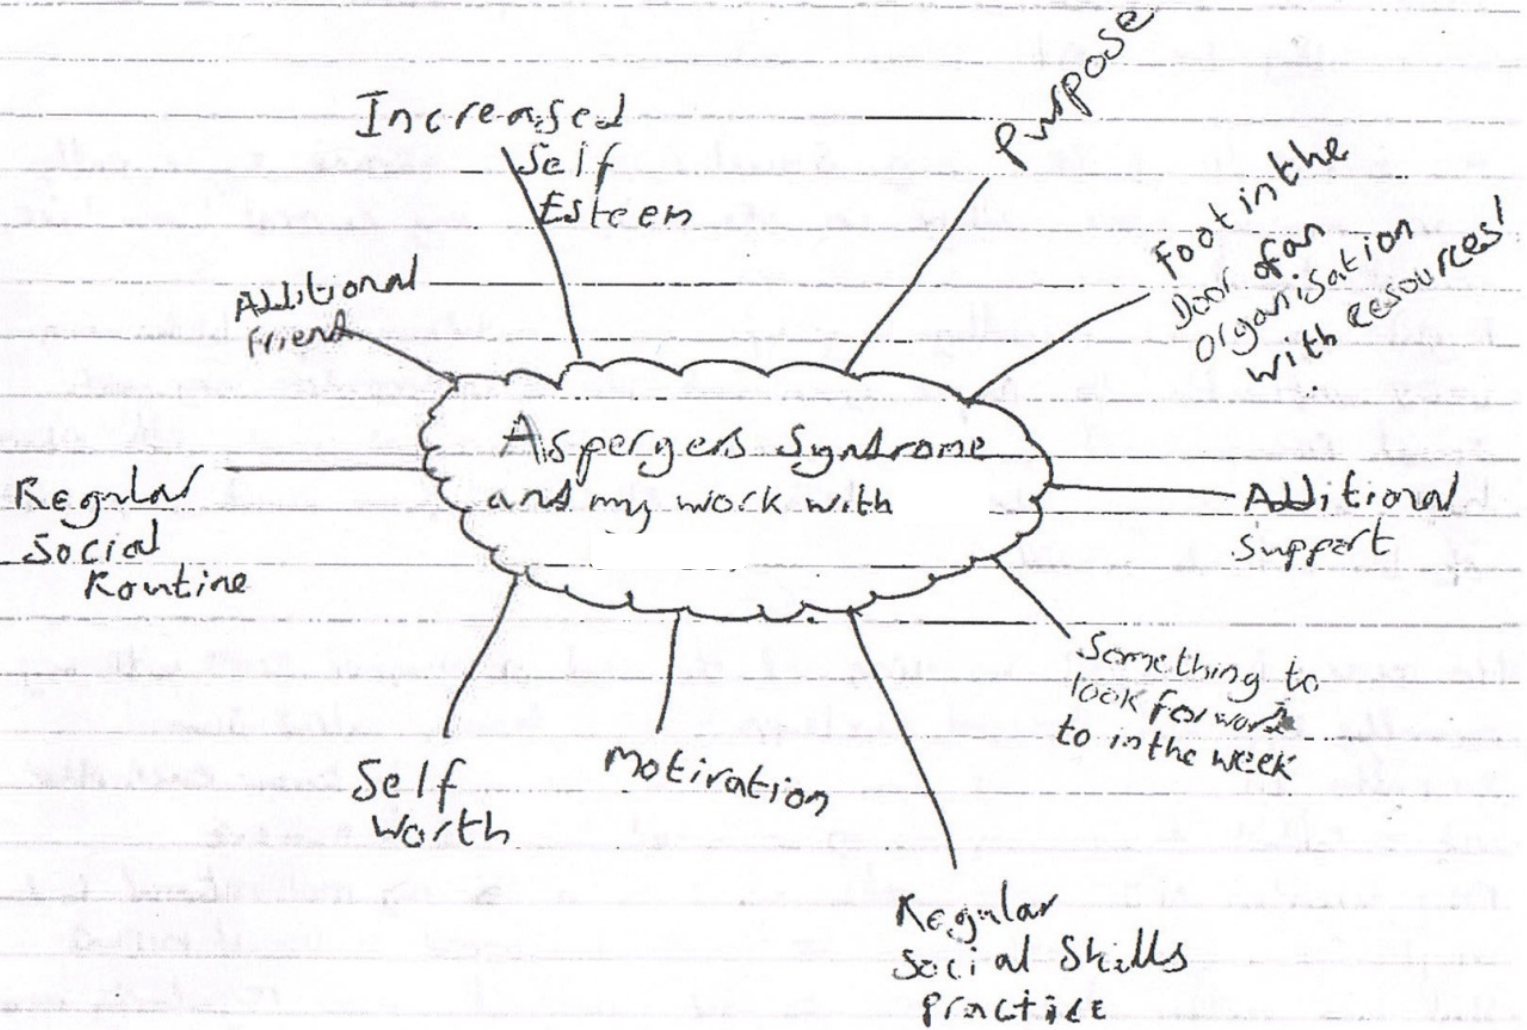 Aspergers Syndrome
and my work with
Increased
Self
Esteem
Purpose
Foot in the
Door of an
Organisation
with Resources!
Additional
Support
Something to
look forward
to in the week
Regular
Social Skills
Practice
Motivation
Self
Worth
Regular
Social
Routine
Additional
Friend